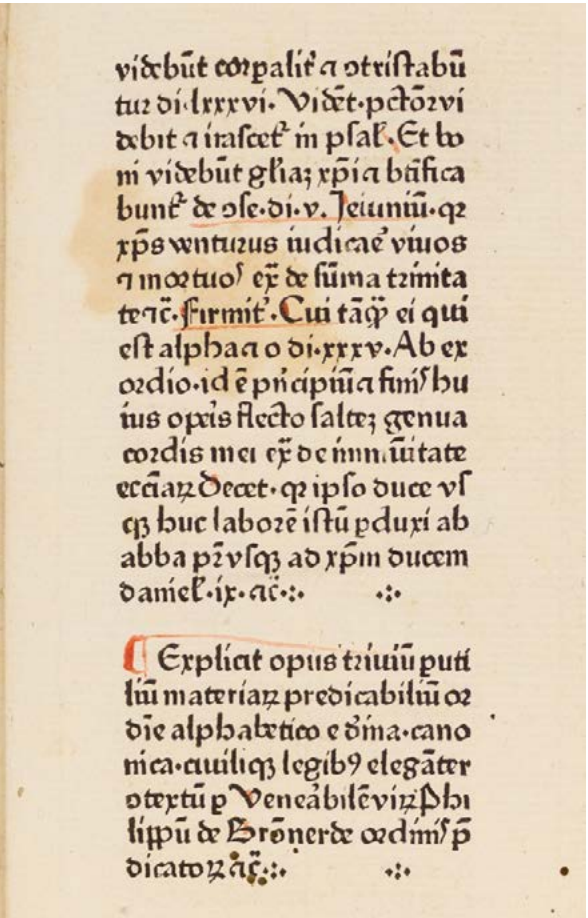 videbūt corꝑalit᷑ ⁊ ↄtristabū
tur di·lxxxvi· Vidēt·pctōr vi
debit ⁊ irascet᷑ in psal᷑·Et bo
ni videbūt gl̄iaꝫ xp̄i ⁊ bt̄ifica
bunt᷑ de ↄse·di·v· Jeiuniū·qꝛ
xp̄s venturus iudicae᷑ viuos
⁊ mortuoſ ex̄ de sūma trinita
te ⁊c̄· firmit᷑·Cui tāꝙ̄ ei qui
est alpha ⁊ o di·xxxv·Ab ex
ordio·id ē pn̄cipiū ⁊ finiſ hu
ius oꝑis flecto salteꝫ genua
cordis mei ex̄ de immūitate
eccīaꝝ Decet·qꝛ ipso duce vſ
qꝫ huc laborē istū ꝑduxi ab
abba pr̄ vsqꝫ ad xp̄m ducem
daniel᷑·ix·⁊c̄·:· ·:·
Explicit opus triuiū ꝑuti
liū materiaꝝ predicabiliū oꝛ
dīe alphabetico e dīna·cano
nica·ciuiliqꝫ legibꝰ elegāter
ↄtextū ꝑ Veneabilē viꝝ Phi
lippū de Brōnerde ordiniſ p̄
dicatoꝝ ⁊c̄·:· ·:·